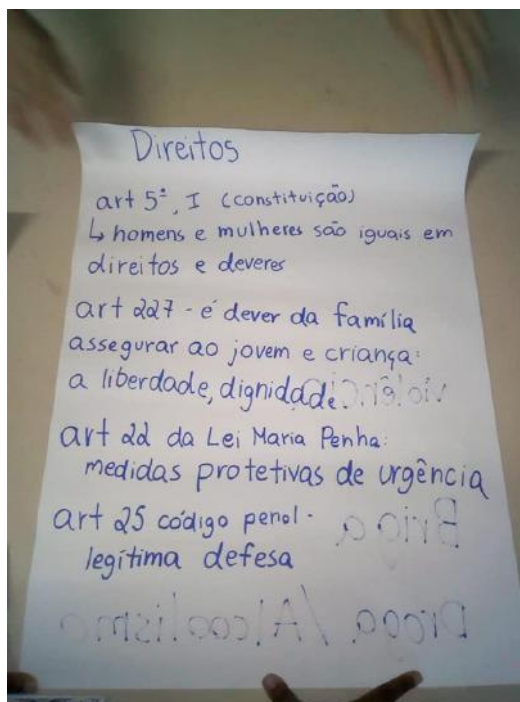 Direitos
art 5º, I (constituição)
↳ homens e mulheres são iguais em
direitos e deveres
art 227 - é dever da família
assegurar ao jovem e criança:
a liberdade, dignidade.
violência
art 22 da Lei Maria Penha:
medidas protetivas de urgência
art 25 código penal -
Briga
legítima defesa
Droga/Alcoolismo